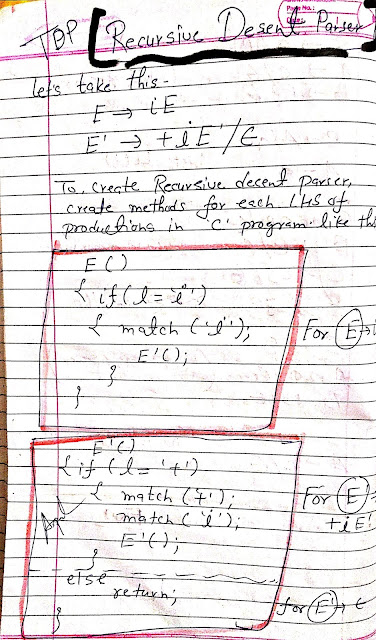 Page No.:
Date:
TDP [Recursive Desent Parser]
let's take this -
E → iE
E' → +iE'/ϵ
To create Recursive decent parser,
create methods for each LHS of
productions in 'C' program. like this
E()
{ if (l = 'i')
{ match ('i');
For E →
E'();
}
}
E'()
{ if (l = '+')
{ match ('+');
For E' →
match ('i');
+iE'
E'();
}
else
return;
for E' → ϵ
}